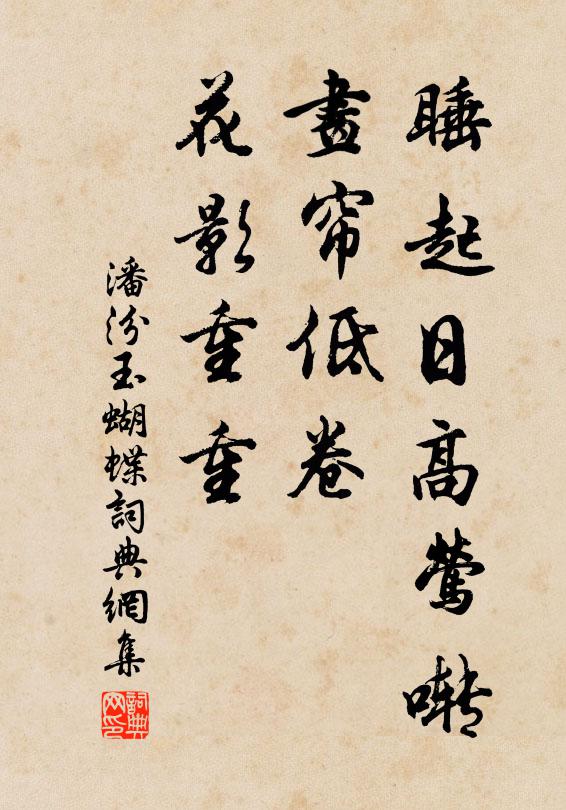 睡起日高鶯啭
畫帘低卷
花影重重
潘汾玉蝴蝶詞典網集
詞典网印